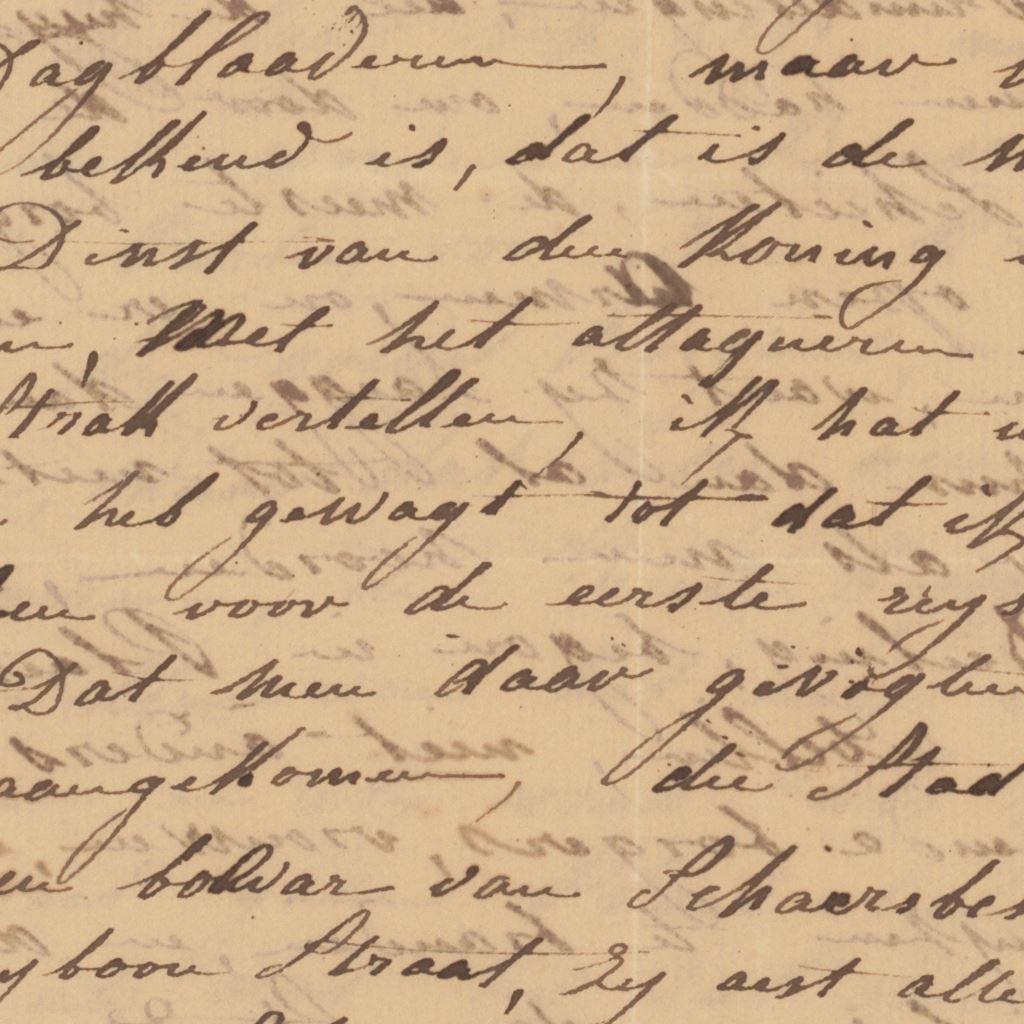 Dagblaaderen, maar
bekend is, dat is de
Dinst van den Koning
, Met het attaqueren
Strak vertellen, ik hat
heb gewagt tot dat ik
voor de eerste reys
Dat men daar gevogten
aangekomen, die Stad
bolwar van Schaersbe
boom Straat, Zy aest alle